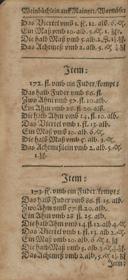 Weinbüchlein auff Rainer/ Wormbser
Das Viertel vmb 1. fl. 12. alb. 6.
Ein Maß vmb 10. alb.
Die halb Maß vmb 5. alb.
Das Achtmeß vmb 2. alb. 5.
Item:
172. fl. vmb ein Fuder/ kompt:
Das halb Fuder vmb 86. fl.
Zwo Ahm vmb 57. fl. 10. alb.
Ein Ahm vmb 28. fl. 20. alb.
Die halb Ahm vmb 14. fl. 10. alb.
Das Viertel vmb 1. fl. 13. alb.
Ein Maß vmb 10. alb. 6.
Die halb Maß vmb 5. alb. 3.
Das Achtmeßlein vmb 2. alb. 5.
Item:
173. fl. vmb ein Fuder/ kompt:
Das halb Fuder vmb 86. fl. 15. alb.
Zwo Ahm vmb 57. fl. 20. alb.
Ein Ahm vmb 28. fl. 25. alb.
Die halb Ahm vmb 14. fl. 12. alb. 4.
Das Viertel vmb 1. fl. 13. alb. 2.
Ein Maß vmb 10. alb. 6.
Die halb Maß vmb 5. alb. 3.
Das Achtmeß vmb 2. alb. 5.
Item: